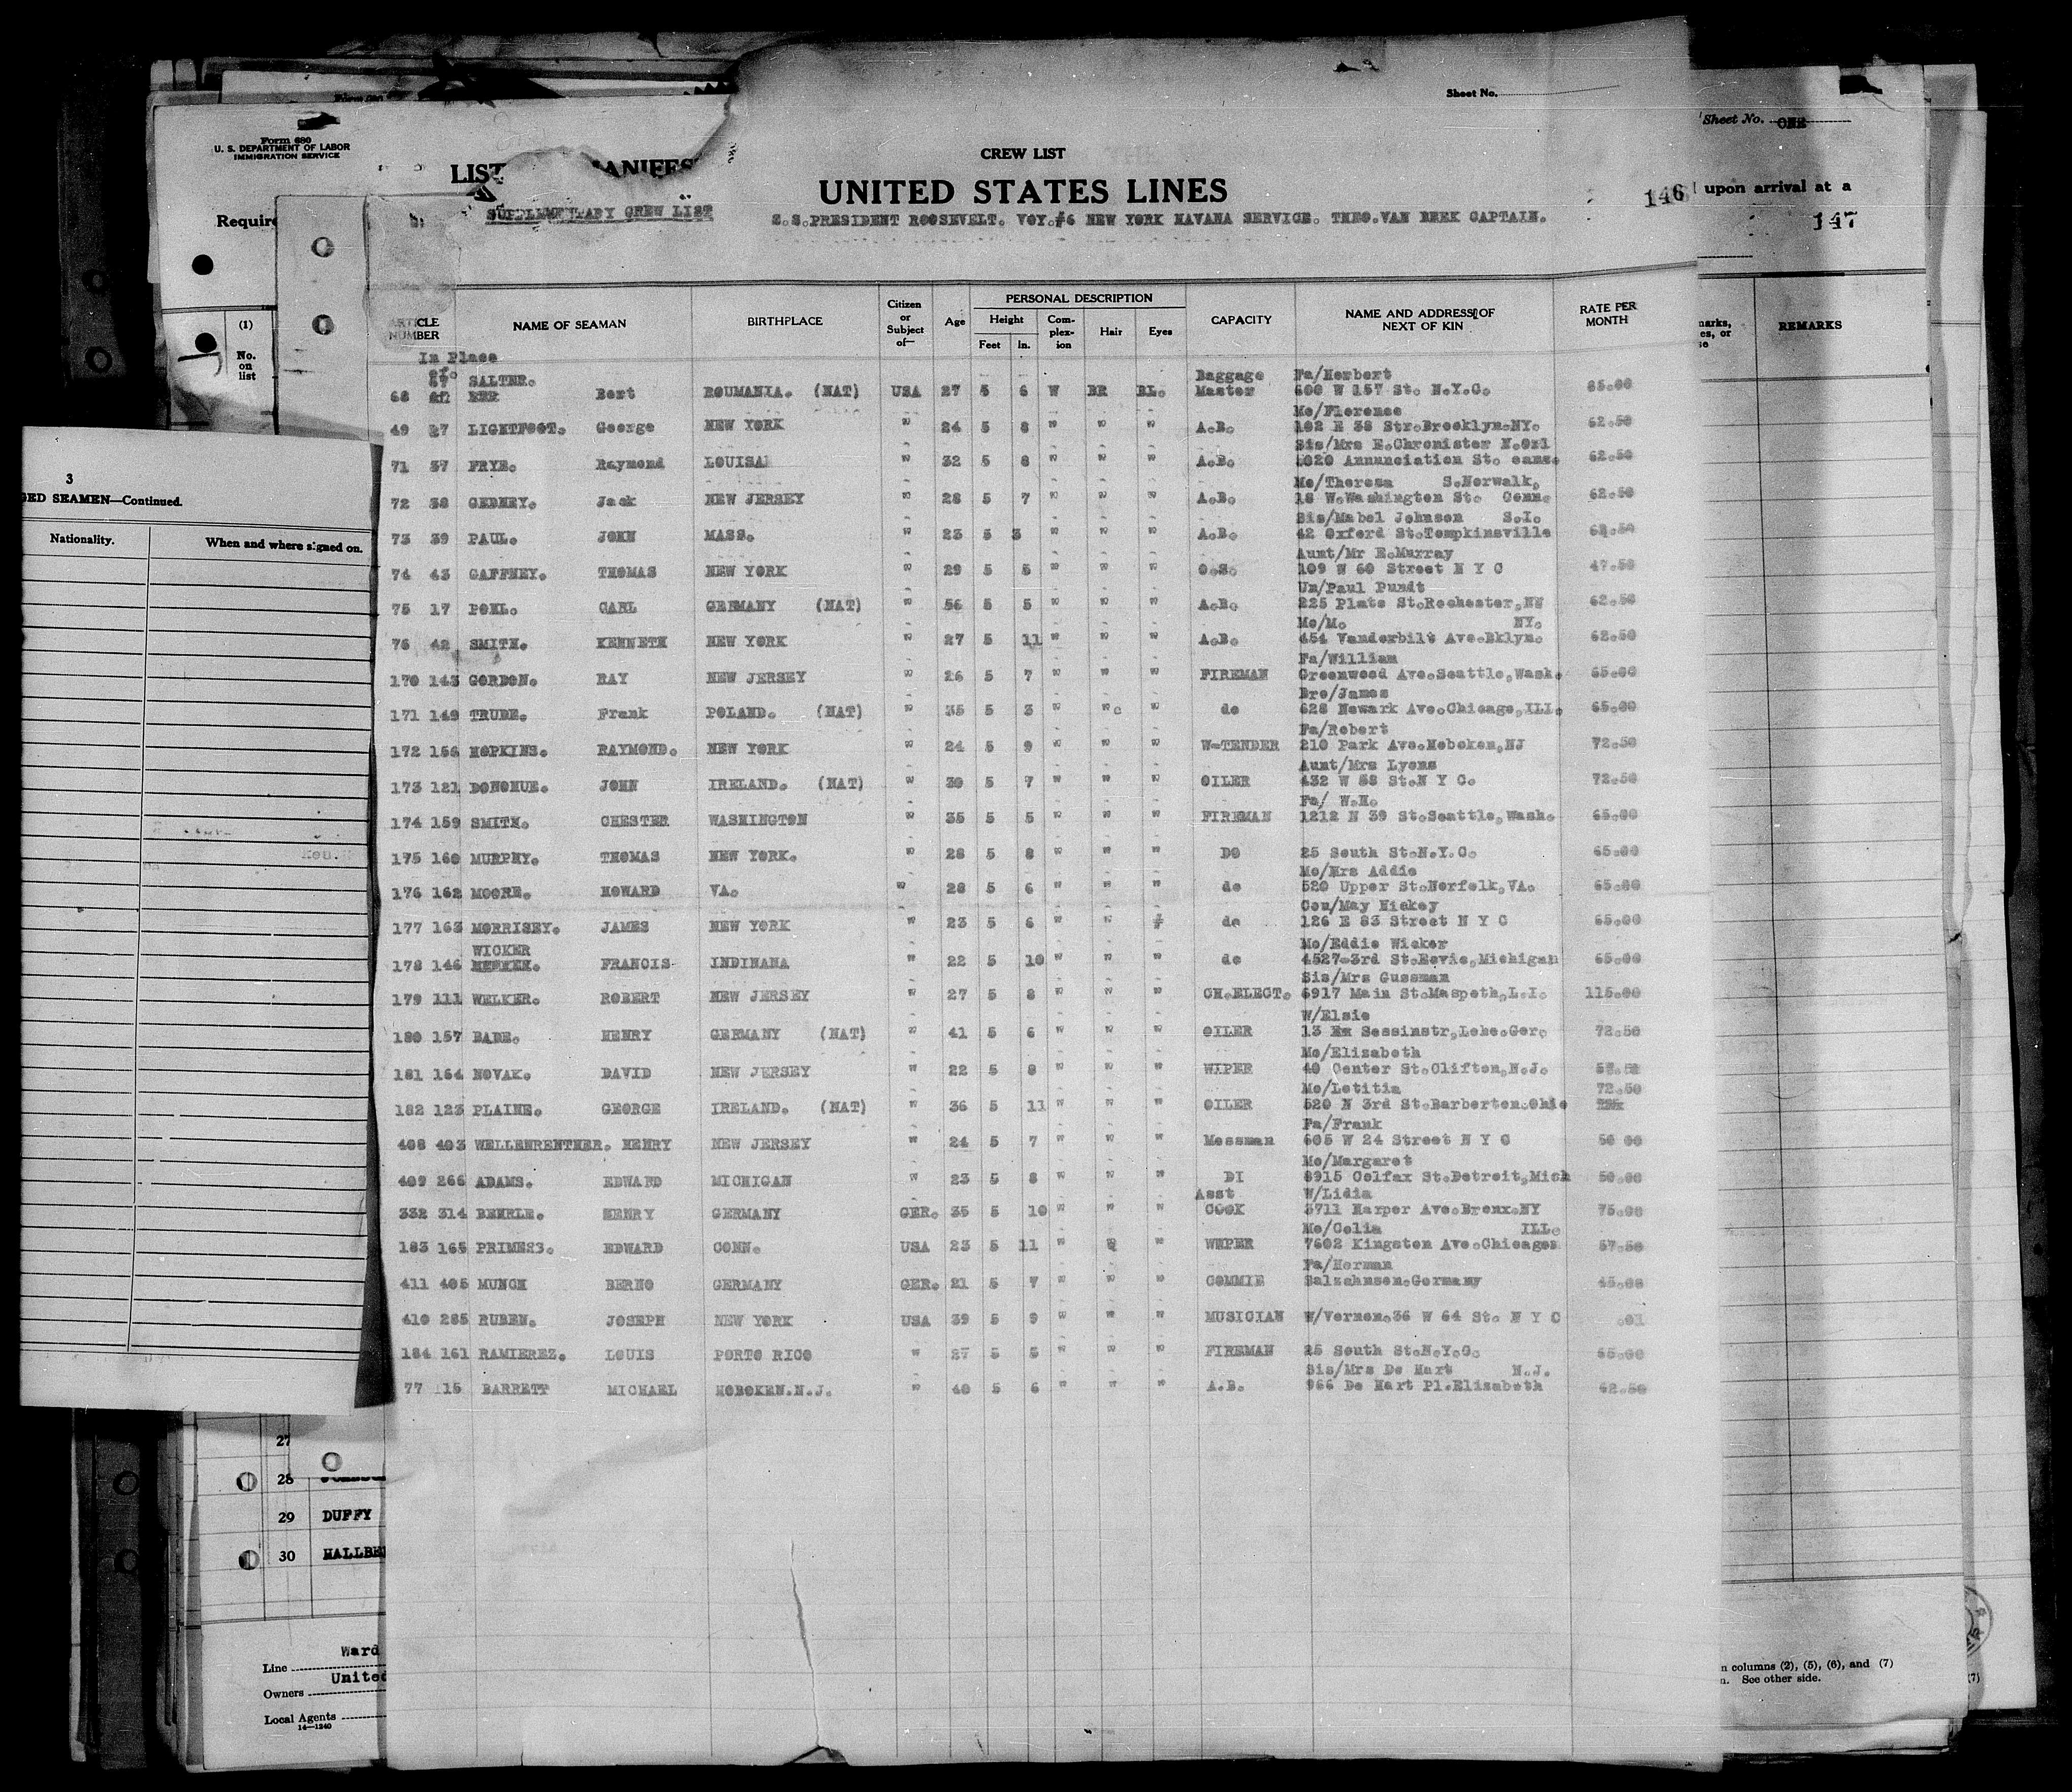 Sheet No.
Sheet No. ONE
Form 680
U. S. DEPARTMENT OF LABOR
IMMIGRATION SERVICE
LIST
CREW LIST
UNITED STATES LINES
146
upon arrival at a
147
Require
SUPPLEMENTARY CREW LIST
S.S.PRESIDENT ROOSEVELT. VOY.#6 NEW YORK HAVANA SERVICE. THEO.VAN BEEK CAPTAIN.
ARTICLE NUMBER NAME OF SEAMAN BIRTHPLACE Citizen or Subject of— Age PERSONAL DESCRIPTION Height Feet In. Complexion Hair Eyes CAPACITY NAME AND ADDRESS OF NEXT OF KIN RATE PER MONTH
(1)
No. on list
REMARKS
In Place of.
67 SALTER. Baggage Fa/Herbert
68 Bert ROUMANIA. (NAT) USA 27 5 6 W BR BL. Master 600 W 157 St. N.Y.C. 85.00
Mo/Florence
49 27 LIGHTFOOT. George NEW YORK " 24 5 8 " " " A.B. 102 E 38 Str.Brooklyn.NY. 62.50
Sis/Mrs E.Chronister N.Orl
71 37 FRYE. Raymond LOUISA " 32 5 8 " " " A.B. 1020 Annunciation St. eans. 62.50
Mo/Theresa S.Norwalk,
72 38 GEDNEY. Jack NEW JERSEY " 28 5 7 " " " A.B. 18 W.Washington St. Conn. 62.50
Sis/Mabel Johnson S.I.
73 39 PAUL. JOHN MASS. " 23 5 3 " " " A.B. 42 Oxford St.Tompkinsville 62.50
Aunt/Mr E.Murray
74 43 GAFFNEY. THOMAS NEW YORK " 29 5 5 " " " O.S. 109 W 60 Street N Y C 47.50
Un/Paul Pundt
75 17 POHL. CARL GERMANY (NAT) " 56 5 5 " " " A.B. 225 Plate St.Rochester,NY 62.50
Mo/M. NY.
76 42 SMITH. KENNETH NEW YORK " 27 5 11 " " " A.B. 454 Vanderbilt Ave.Bklyn. 62.50
Fa/William
170 143 GORDON. RAY NEW JERSEY " 26 5 7 " " " FIREMAN Greenwood Ave.Seattle,Wash. 65.00
Bro/James
171 149 TRUDE. Frank POLAND. (NAT) " 35 5 3 " " " do 628 Newark Ave.Chicago,ILL. 65.00
Fa/Robert
172 156 HOPKINS. RAYMOND. NEW YORK " 24 5 9 " " " W-TENDER 210 Park Ave.Hoboken,NJ 72.50
Aunt/Mrs Lyons
173 121 DONOHUE. JOHN IRELAND. (NAT) " 30 5 7 " " " OILER 432 W 58 St.N Y C. 72.50
Fa/ W.H.
174 159 SMITH. CHESTER WASHINGTON " 35 5 5 " " " FIREMAN 1212 N 39 St.Seattle,Wash. 65.00
175 160 MURPHY. THOMAS NEW YORK. " 28 5 8 " " " DO 25 South St.N.Y.C. 65.00
Mo/Mrs Addie
176 162 MOORE. HOWARD VA. " 28 5 6 " " " do 520 Upper St.Norfolk,VA. 65.00
Cou/May Hickey
177 163 MORRISEY. JAMES NEW YORK " 23 5 6 " " do 126 E 83 Street N Y C 65.00
WICKER Mo/Eddie Wicker
178 146 FRANCIS INDINANA " 22 5 10 " " " do 4527-3rd St.Eevie,Michigan 65.00
Sis/Mrs Gussman
179 111 WELKER. ROBERT NEW JERSEY " 27 5 8 " " " CH.ELECT. 5917 Main St.Maspeth,L.I. 115.00
W/Elsie
180 157 BADE. HENRY GERMANY (NAT) " 41 5 6 " " " OILER 13 Sessinstr,Lehe.Ger. 72.50
Mo/Elizabeth
181 164 NOVAK. DAVID NEW JERSEY " 22 5 8 " " " WIPER 40 Center St.Clifton,N.J. 57.50
Mo/Letitia 72.50
182 123 PLAINE. GEORGE IRELAND. (NAT) " 36 5 11 " " " OILER 520 N 3rd St.Barberton.Ohio
Fa/Frank
408 403 WELLENRENTHER. HENRY NEW JERSEY " 24 5 7 " " " Messman 605 W 24 Street N Y C 50 00
Mo/Margaret
409 266 ADAMS. EDWARD MICHIGAN " 23 5 8 " " " DI 8915 Colfax St.Detroit,Mich 50.00
Asst W/Lidia
332 314 BEHRLE. HENRY GERMANY GER. 35 5 10 " " " COOK 3711 Harper Ave.Bronx.NY 75.00
Mo/Celia ILL.
183 165 PRIMES3. EDWARD CONN. USA 23 5 11 " " " WIPER 7602 Kingston Ave.Chicago. 57.50
Fa/Herman
411 405 MUNCH BERNO GERMANY GER. 21 5 7 " " " COMMIE Salzahnsen.Germany 45.00
410 285 RUBEN. JOSEPH NEW YORK USA 39 5 9 " " " MUSICIAN W/Vernon.36 W 64 St. N Y C .01
184 161 RAMIEREZ. LOUIS PORTO RICO " 27 5 5 " " " FIREMAN 25 South St.N.Y.C. 65.00
Sis/Mrs De Hart N.J.
77 15 BARRETT MICHAEL HOBOKEN.N.J. " 40 5 6 " " " A.B. 966 De Hart Pl.Elizabeth 62.50
3
GED SEAMEN—Continued.
Nationality. When and where signed on.
27
28
29 DUFFY
30 HALLBE
Line Ward
Owners United
Local Agents
14—1240
n columns (2), (5), (6), and (7)
n. See other side.
(7)